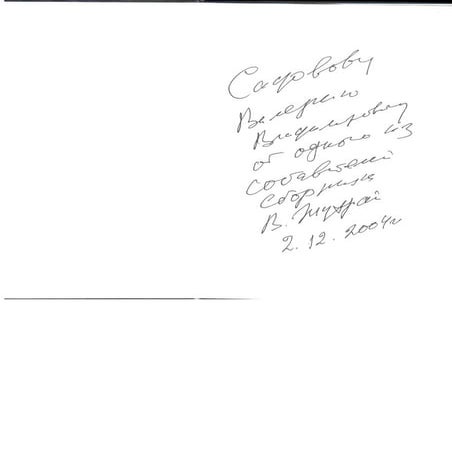 Сафовову
Валерию
Владимировичу
от одного из
составителей
сборника
В.
2.12.2004г